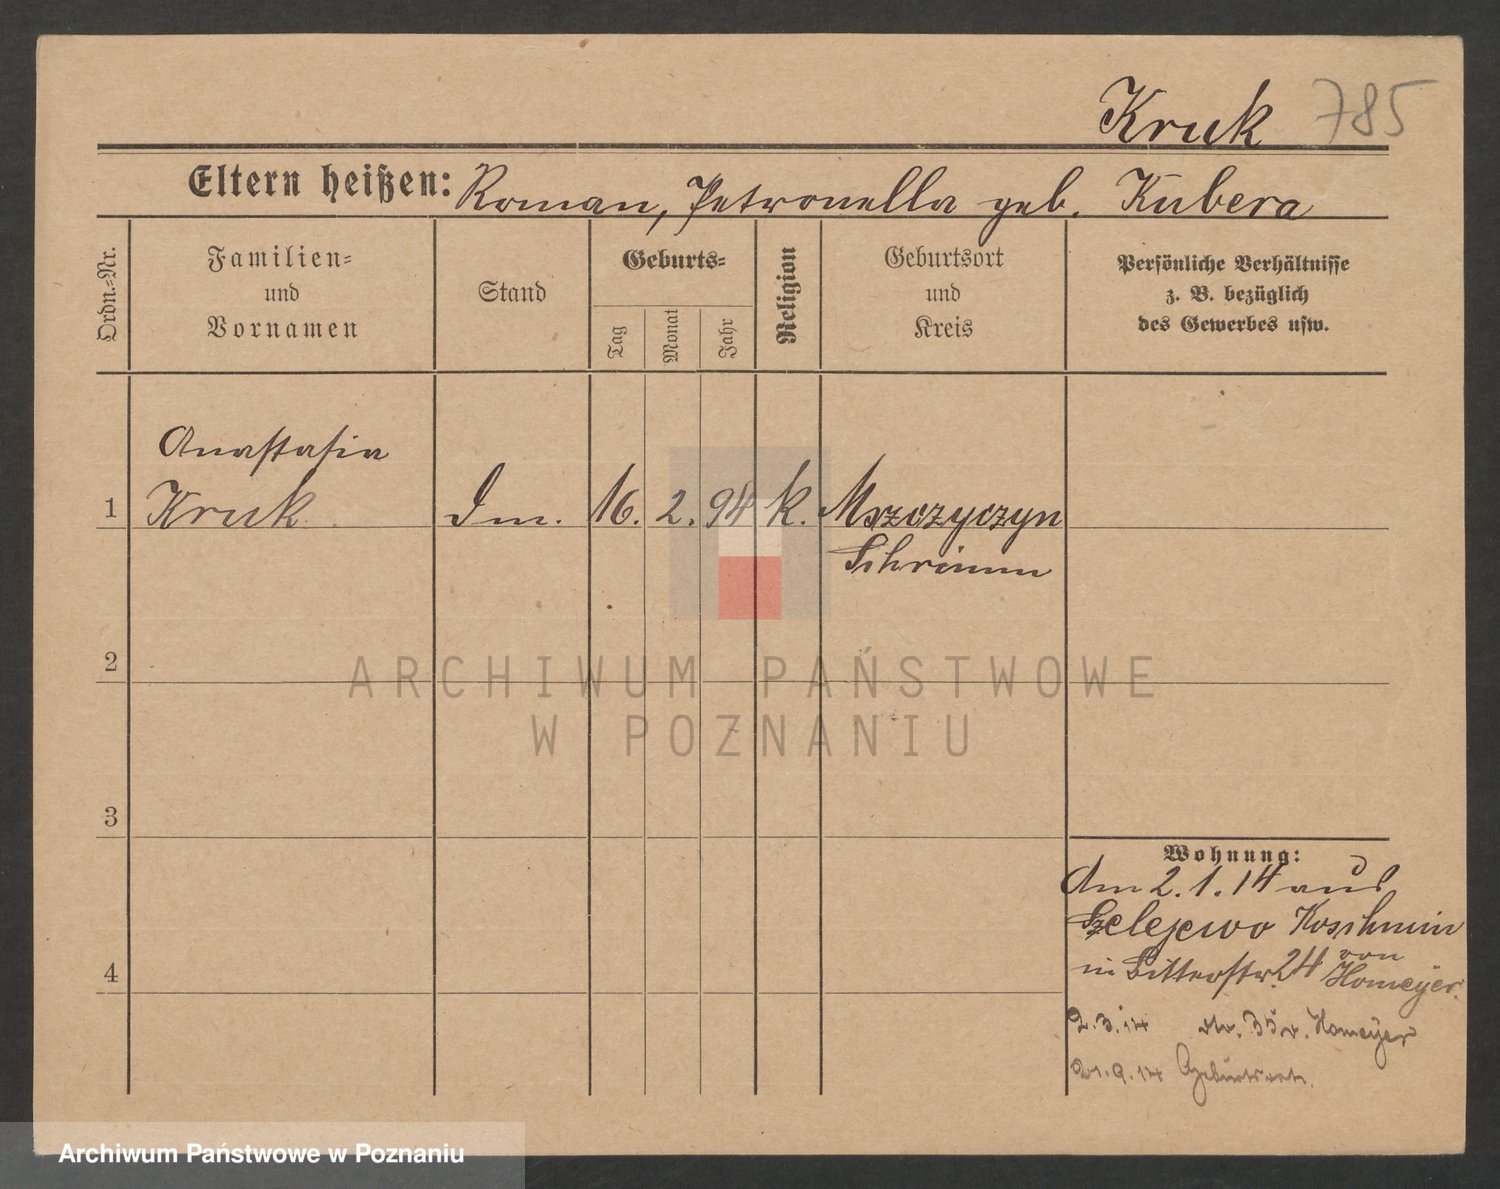 Kruk 785
Eltern heißen: Roman, Petronella geb. Kubera
Ordn.-Nr.
Familien-
und
Vornamen
Stand
Geburts-
Tag
Monat
Jahr
Religion
Geburtsort
und
Kreis
Persönliche Verhältnisse
z. B. bezüglich
des Gewerbes usw.
Anastasia
1 Kruk Dm. 16. 2. 94 k. Mszczyczyn
Schrimm
2
3
4
Wohnung:
Am 2.1.14 aus
Szelejewo Koschmin
in Ritterstr. 24 von
Homeyer.
2.3.14 str. 35 v. Homeyer
21.9.14 Geburtsort.
ARCHIWUM PAŃSTWOWE
W POZNANIU
Archiwum Państwowe w Poznaniu